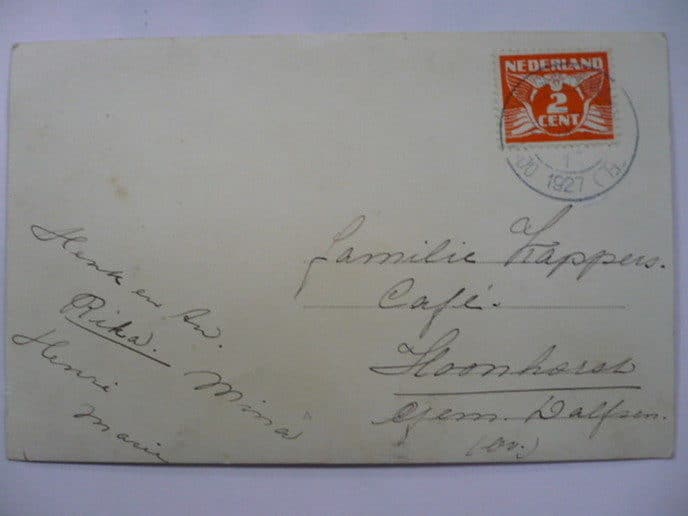 NEDERLAND
2
CENT
1
1927
Henk en An.
Rika. Mina
Henri
Marie
Familie Kappers.
Café.
Hoonhorst
Gem. Dalfsen.
(Ov.)